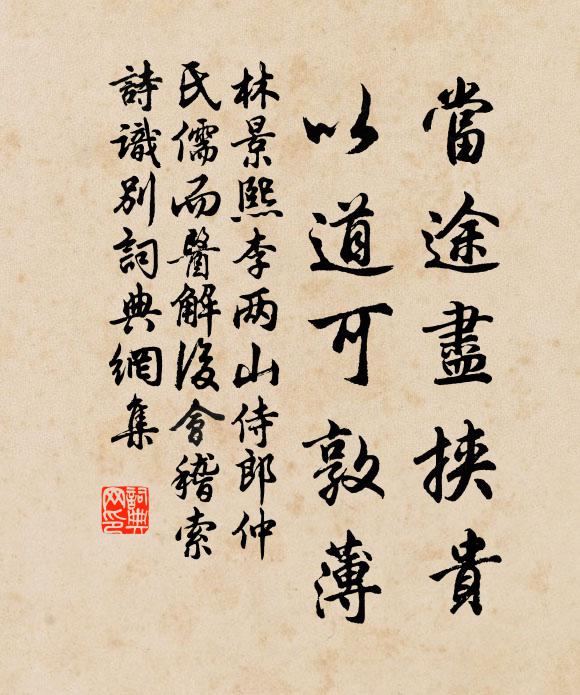 當途盡挾貴
以道可敦薄
林景熙李两山侍郎仲
氏儒而醫解後會稽索
詩識別詞典網集
詞典
网印